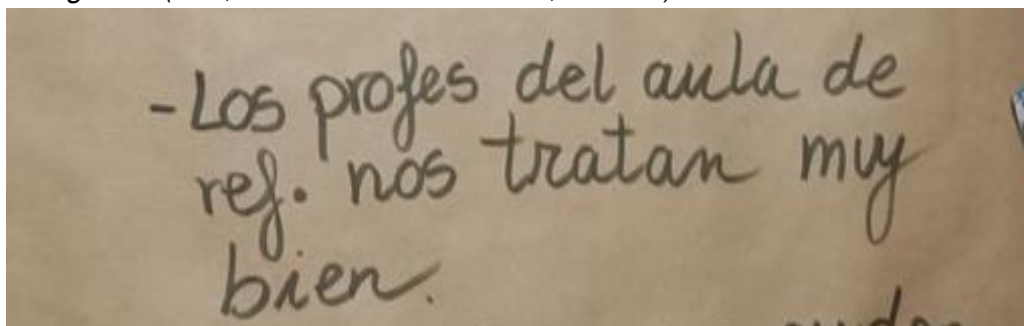 - Los profes del aula de
ref. nos tratan muy
bien.